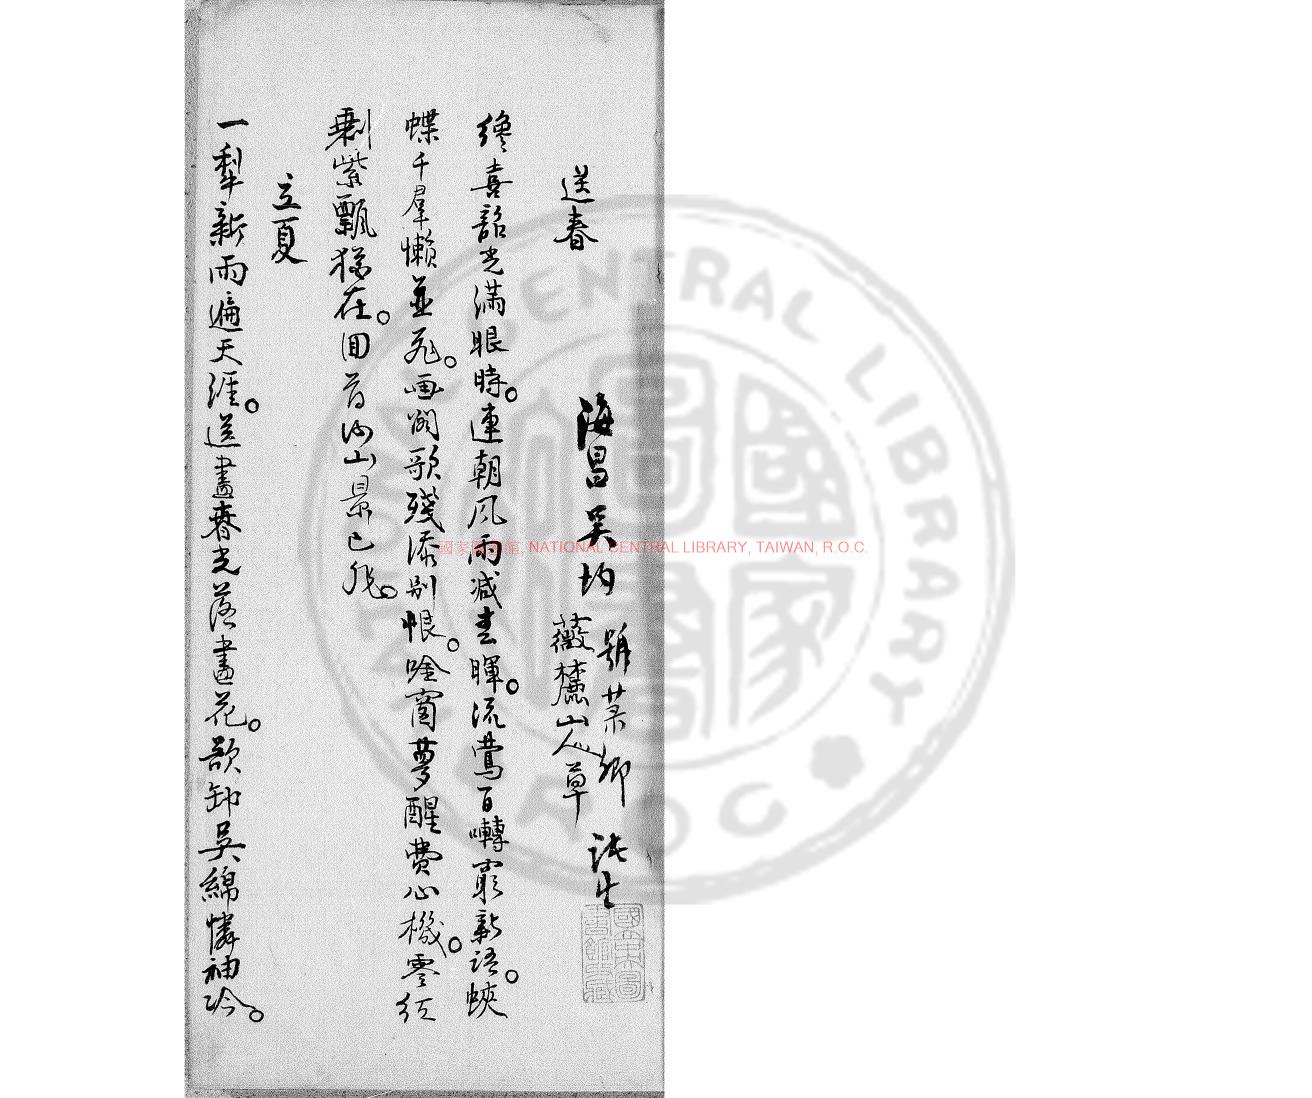 送春
海昌吳均
號某卿
薇麓山人草
纔喜韶光滿眼時。連朝風雨減春暉。流鶯百囀窮新語。蛺
蝶千羣懶並飛。画閣歌殘添別恨。吟窗夢醒費心機。零紅
剩紫飄猶在。回首河山景已非。
立夏
一犁新雨遍天涯。送盡春光落盡花。欲卸吳綿憐袖冷。
國家圖書館, NATIONAL CENTRAL LIBRARY, TAIWAN, R.O.C.
NATIONAL CENTRAL LIBRARY
R.O.C.
國家圖書
國家圖書館藏